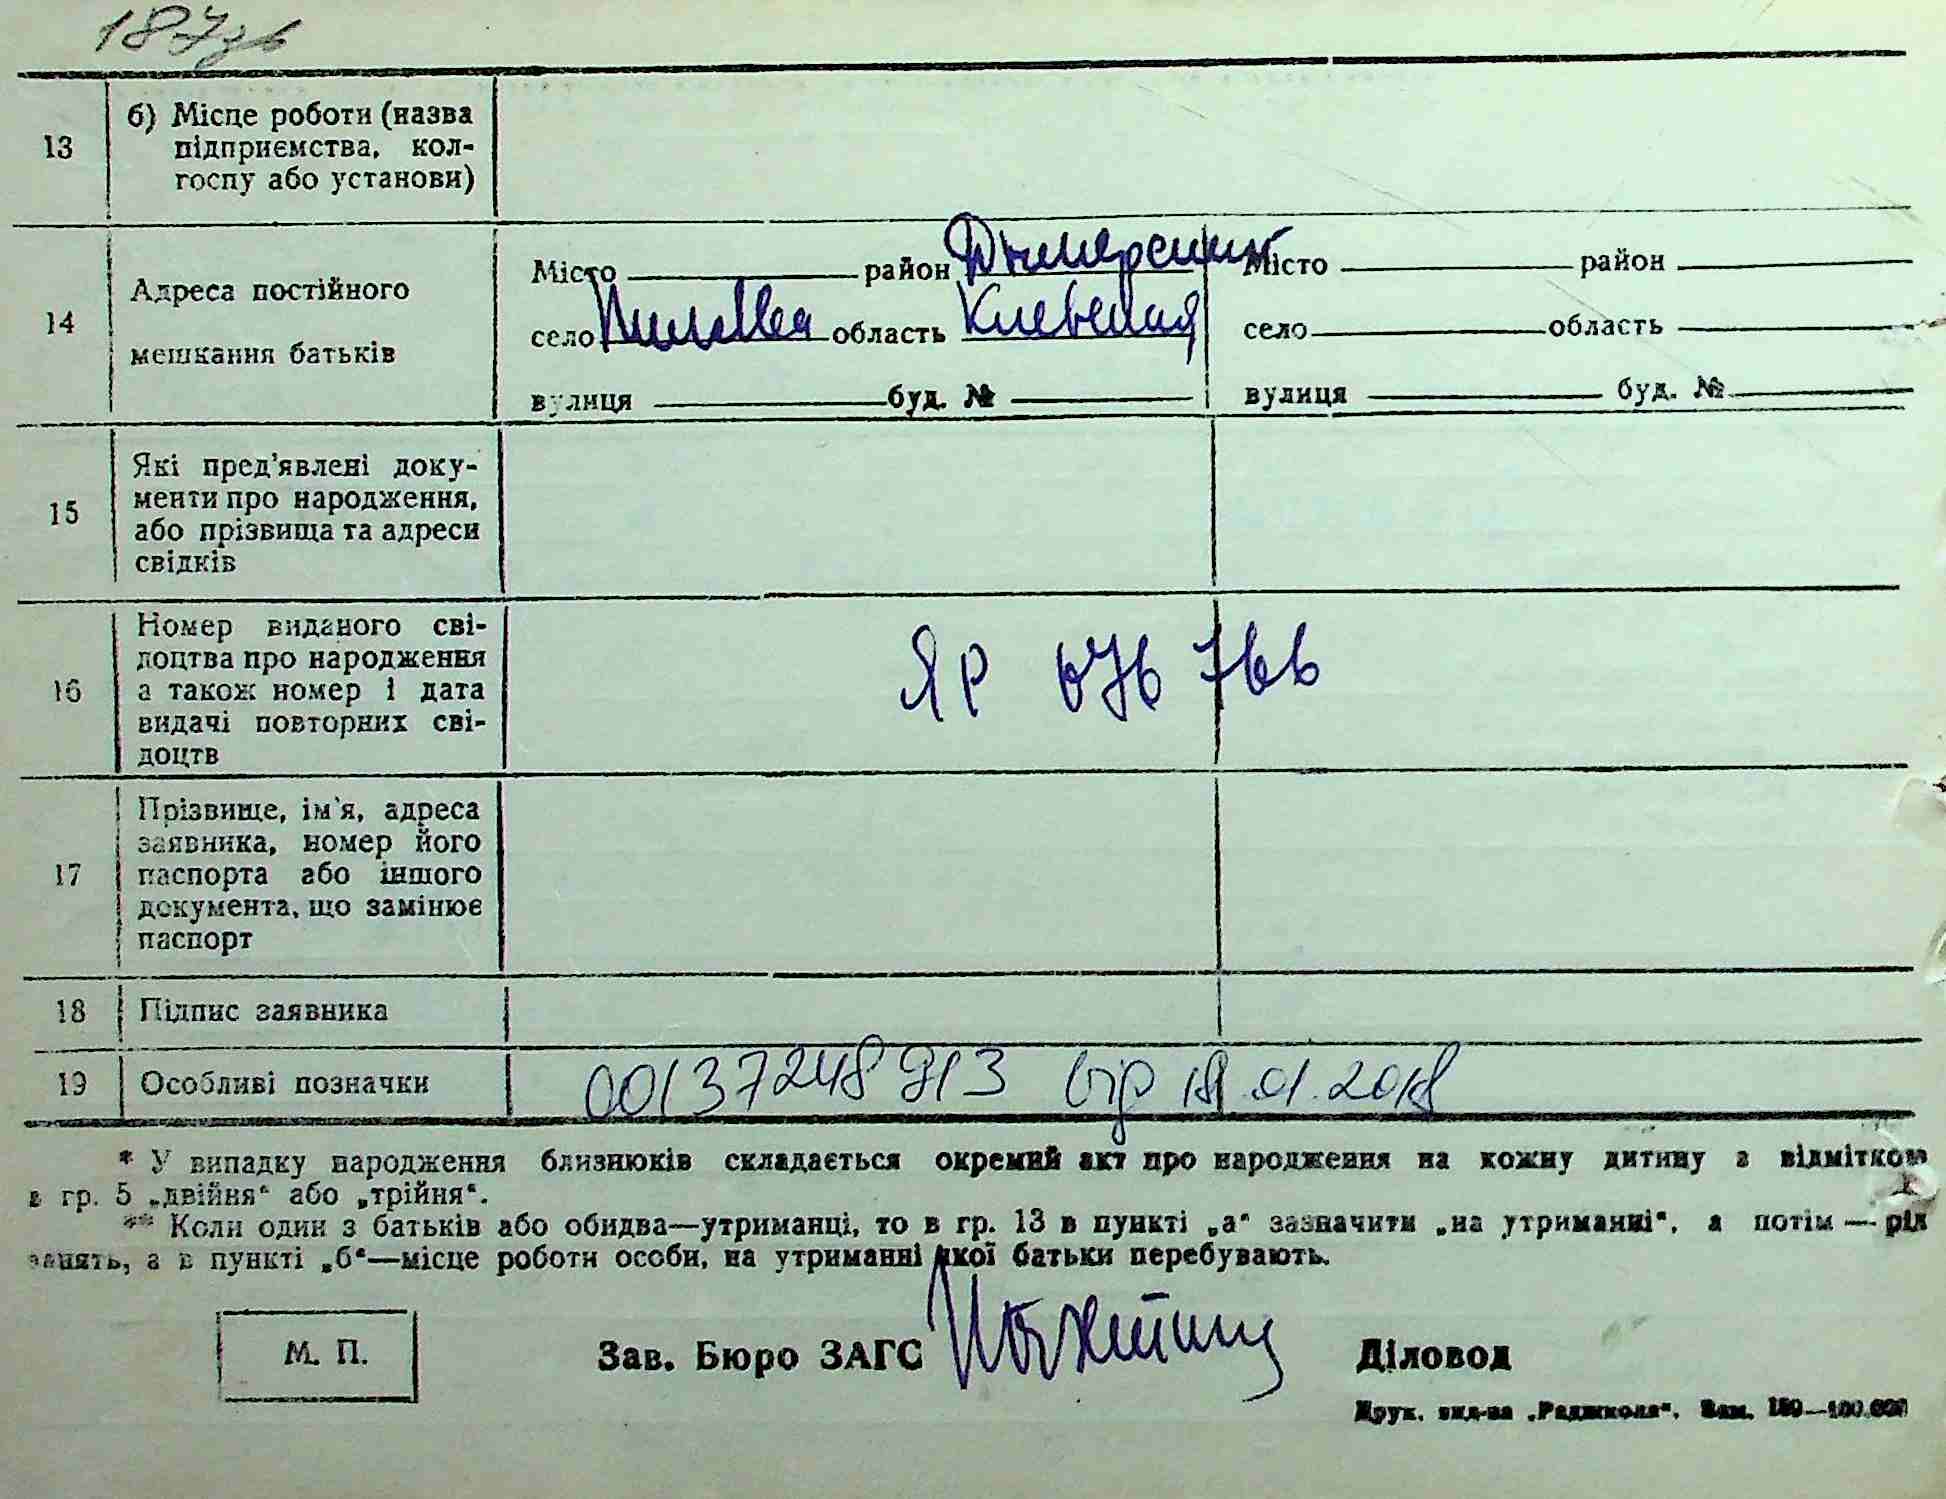 187зв
13
б) Місце роботи (назва
підприємства, кол-
госпу або установи)
14
Адреса постійного
мешкання батьків
Місто район Дымерский
село область Киевская
вулиця буд. №
Місто район
село область
вулиця буд. №
15
Які пред'явлені доку-
менти про народження,
або прізвища та адреси
свідків
16
Номер виданого сві-
доцтва про народження
а також номер і дата
видачі повторних сві-
доцтв
ЯР 676 766
17
Прізвище, ім'я, адреса
заявника, номер його
паспорта або іншого
документа, що замінює
паспорт
18
Підпис заявника
19
Особливі позначки
00137248913 від 18.01.2018
* У випадку народження близнюків складається окремий акт про народження на кожну дитину з відміткою
в гр. 5 „двійня“ або „трійня“.
** Коли один з батьків або обидва—утриманці, то в гр. 13 в пункті „а“ зазначити „на утриманні“, а потім — рід
занять, а в пункті „б“—місце роботи особи, на утриманні якої батьки перебувають.
М. П.
Зав. Бюро ЗАГС
Діловод
Друк. вид-ва „Радшкола“. Зам. 150—100.000